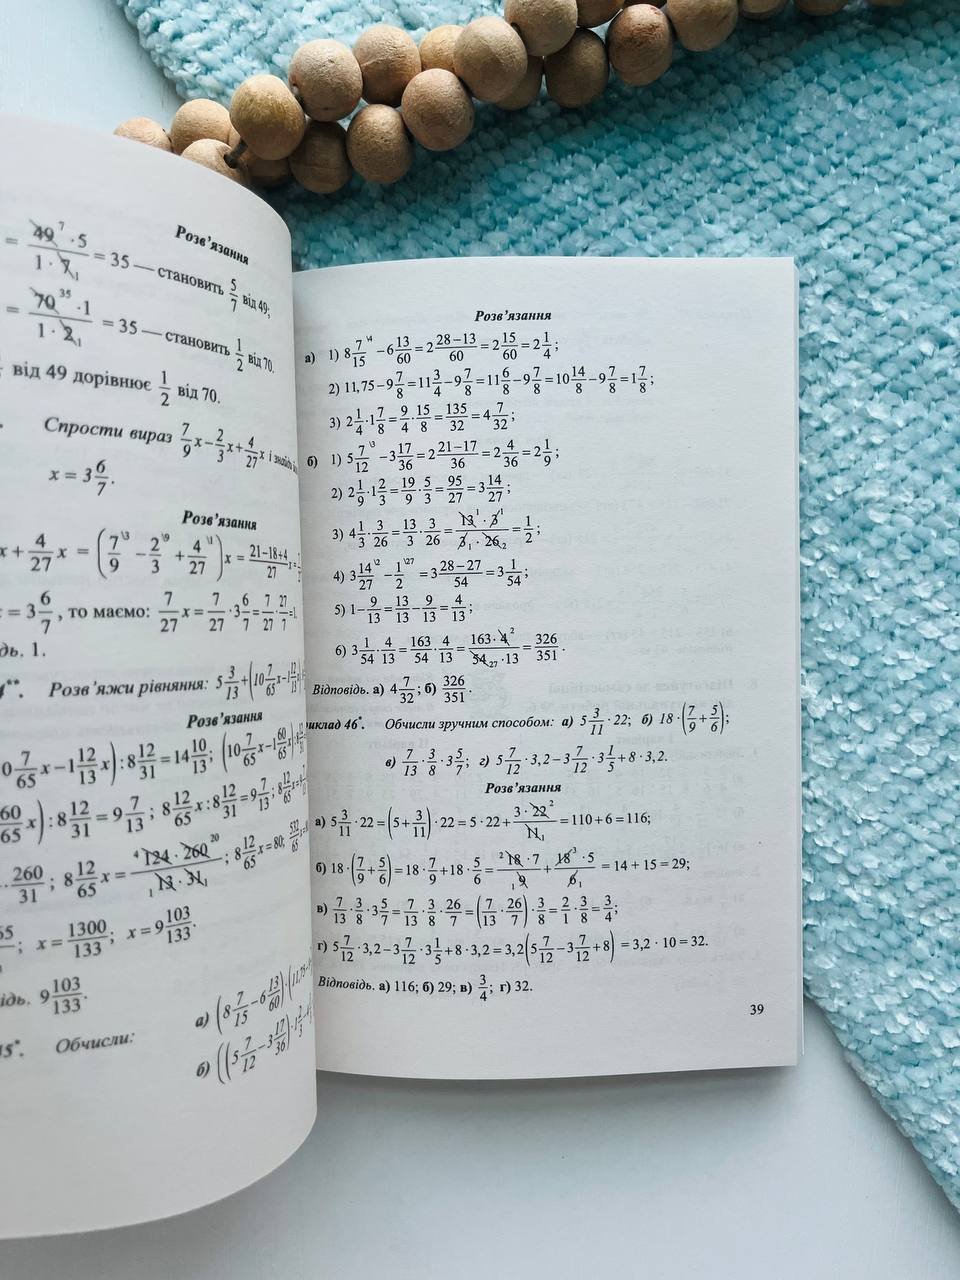 Розв’язання
= 49⁷ · 5 / 1 · 7₁ = 35 — становить 5/7 від 49;
= 70³⁵ · 1 / 1 · 2₁ = 35 — становить 1/2 від 70.
від 49 дорівнює 1/2 від 70.
Спрости вираз 7/9 x − 2/3 x + 4/27 x і
x = 3 6/7.
Розв’язання
x + 4/27 x = (7/9 \3 − 2/3 \9 + 4/27 \1) x = 21−18+4/27 x =
= 3 6/7, то маємо: 7/27 x = 7/27 · 3 6/7 = 7/27 · 27/7 = 1.
1.
**. Розв’яжи рівняння: 5 3/13 + (10 7/65 x − 1 12/13 x)
Розв’язання
0 7/65 x − 1 12/13 x) : 8 12/31 = 14 10/13; (10 7/65 x − 1 60/65 x) : 8
60/65 x) : 8 12/31 = 9 7/13; 8 12/65 x : 8 12/31 = 9 7/13; 8 12/65 x =
· 260/31; 8 12/65 x = ⁴124 · 260²⁰ / ₁13 · 31₁; 8 12/65 x = 80; 532/65 x =
x = 1300/133; x = 9 103/133.
9 103/133.
*. Обчисли:
а) (8 7/15 − 6 13/60) · (11,75 −
б) ((5 7/12 − 3 17/36) · 1 2/3 −
Розв’язання
а) 1) 8 7/15 \4 − 6 13/60 = 2 28−13/60 = 2 15/60 = 2 1/4;
2) 11,75 − 9 7/8 = 11 3/4 − 9 7/8 = 11 6/8 − 9 7/8 = 10 14/8 − 9 7/8 = 1 7/8;
3) 2 1/4 · 1 7/8 = 9/4 · 15/8 = 135/32 = 4 7/32;
б) 1) 5 7/12 \3 − 3 17/36 = 2 21−17/36 = 2 4/36 = 2 1/9;
2) 2 1/9 · 1 2/3 = 19/9 · 5/3 = 95/27 = 3 14/27;
3) 4 1/3 · 3/26 = 13/3 · 3/26 = 13¹ · 3¹ / 3₁ · 26₂ = 1/2;
4) 3 14/27 \2 − 1/2 \27 = 3 28−27/54 = 3 1/54;
5) 1 − 9/13 = 13/13 − 9/13 = 4/13;
6) 3 1/54 · 4/13 = 163/54 · 4/13 = 163 · 4² / 54₂₇ · 13 = 326/351.
Відповідь. а) 4 7/32; б) 326/351.
46*. Обчисли зручним способом: а) 5 3/11 · 22; б) 18 · (7/9 + 5/6);
в) 7/13 · 3/8 · 3 5/7; г) 5 7/12 · 3,2 − 3 7/12 · 3 1/5 + 8 · 3,2.
Розв’язання
а) 5 3/11 · 22 = (5 + 3/11) · 22 = 5 · 22 + 3 · 22² / 11₁ = 110 + 6 = 116;
б) 18 · (7/9 + 5/6) = 18 · 7/9 + 18 · 5/6 = ²18 · 7 / ₁9 + 18³ · 5 / 6₁ = 14 + 15 = 29;
в) 7/13 · 3/8 · 3 5/7 = 7/13 · 3/8 · 26/7 = (7/13 · 26/7) · 3/8 = 2/1 · 3/8 = 3/4;
г) 5 7/12 · 3,2 − 3 7/12 · 3 1/5 + 8 · 3,2 = 3,2 (5 7/12 − 3 7/12 + 8) = 3,2 · 10 = 32.
Відповідь. а) 116; б) 29; в) 3/4; г) 32.
39